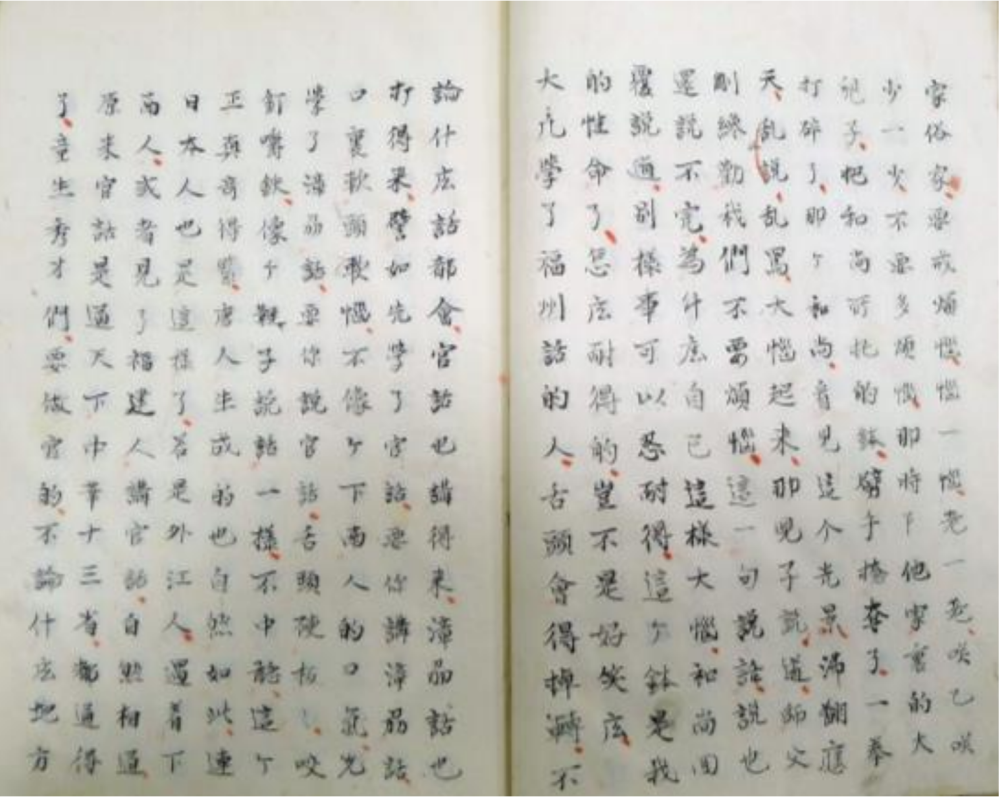 家俗家要戒煩惱惱一惱老一老咲乙咲
少一少不要多煩惱那時卩他家裏的大
兒子把和尚可托的鉢劈手搶奪了一拳
打碎了那ケ和尚音見這个光景滿翻應
天乱說乱罵大惱起来那兒子說道師父
剛纔勸我們不要煩惱這一句說話說也
還說不完為什庅自己這樣大惱和尚回
覆說道別樣事可以忍耐得這ケ鉢是我
的性命了怎庅耐得的豈不是好笑庅
大凢學了福州話的人舌頭會得掉轉不
論什庅話都會官話也講得来漳州話也
打得来譬如先學了官話要你講漳州話
口裏軟頭軟惱不像ケ下南人的口氣先
學了漳州話要你說官話舌頭硬板咬
釘嚼鉄像ケ韃子說話一樣不中聽這ケ
正真奇得緊唐人生成的也自然如此連
日本人也是這樣了若是外江人遇着下
南人或者見了福建人講官話自然相通
原来官話是通天下中華十三省都通得
了童生秀才們要做官的不論什庅地方